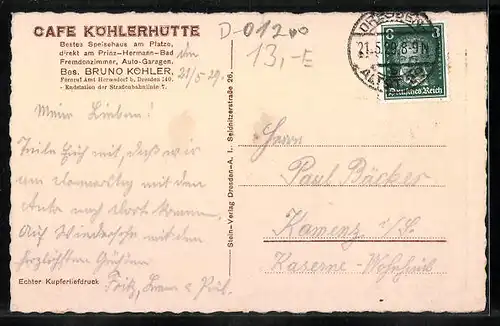 CAFE KÖHLERHÜTTE
Bestes Speisehaus am Platze,
direkt am Prinz-Hermann-Bad
Fremdenzimmer, Auto-Garagen.
Bes. BRUNO KÖHLER,
Fernruf Amt Hermsdorf b. Dresden 140.
- Endstation der Straßenbahnlinie 7.
21/5 29.
D-01200
13,-E
DRESDEN
21.5.29.8-9N
ALTST.
3 3
Deutsches Reich
Meine Lieben!
Teile Euch mit, daß wir
am Donnerstag mit dem
Auto nach dort kommen.
Auf Wiedersehn mit den
herzlichsten Grüßen
Fritz,
Echter Kupfertiefdruck
Stein-Verlag Dresden-A. 1, Seidnitzerstraße 26.
Herrn
Paul Bäcker
Kamenz i/S.
Kaserne-Wohnhaus